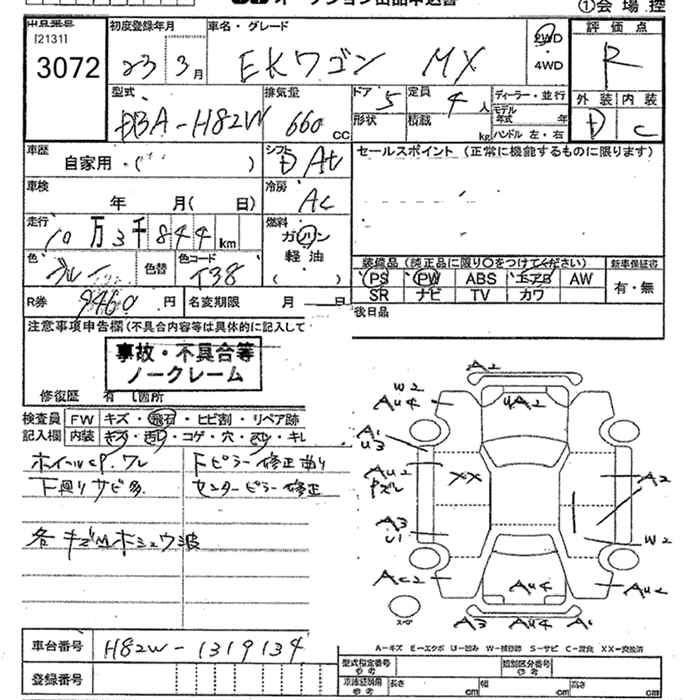 オークション出品申込書
①会場控
出品番号 初度登録年月 車名・グレード 評価点
[2131]
3072 23 3月 EKワゴン MX 2WD ・4WD R
型式 排気量 ドア 5 定員 4人 ディーラー・並行 外装 内装
DBA-H82W 660 cc 形状 積載 kg モデル年式 年 ハンドル 左・右 D C
車歴 自家用・( ) シフト D At セールスポイント (正常に機能するものに限ります)
車検 年 月( 日) 冷房 AC
走行 10万3千844km 燃料 ガソリン 軽油
色 ブルー 色替 色コード T38
装備品 (純正品に限り○をつけてください) 新車保証書
PS PW ABS エアB AW 有・無
SR ナビ TV カワ
R券 9460円 名変期限 月 日 後日品
注意事項申告欄(不具合内容等は具体的に記入して
事故・不具合等
ノークレーム
修復歴 有 箇所
検査員 FW キズ・飛石・ヒビ割・リペア跡
記入欄 内装 キズ・汚レ・コゲ・穴・スレ・キレ
ホイールCP. ワレ Fピラー修正曲り
下廻りサビ多 センターピラー修正
各キズMホシュウ波
A2
W2
AU4 UA2
A1
U3
AU2 XX A2
A3
U1 W2
AC2 AU4 AU2
スペア A3 AU4 A1
車台番号 H82W-1319134
A-キズ E-エクボ U-凹み W-補修跡 S-サビ C-腐食 XX-交換済
登録番号 型式指定番号 参考 類別区分番号 参考
長さ cm 幅 cm 高さ cm